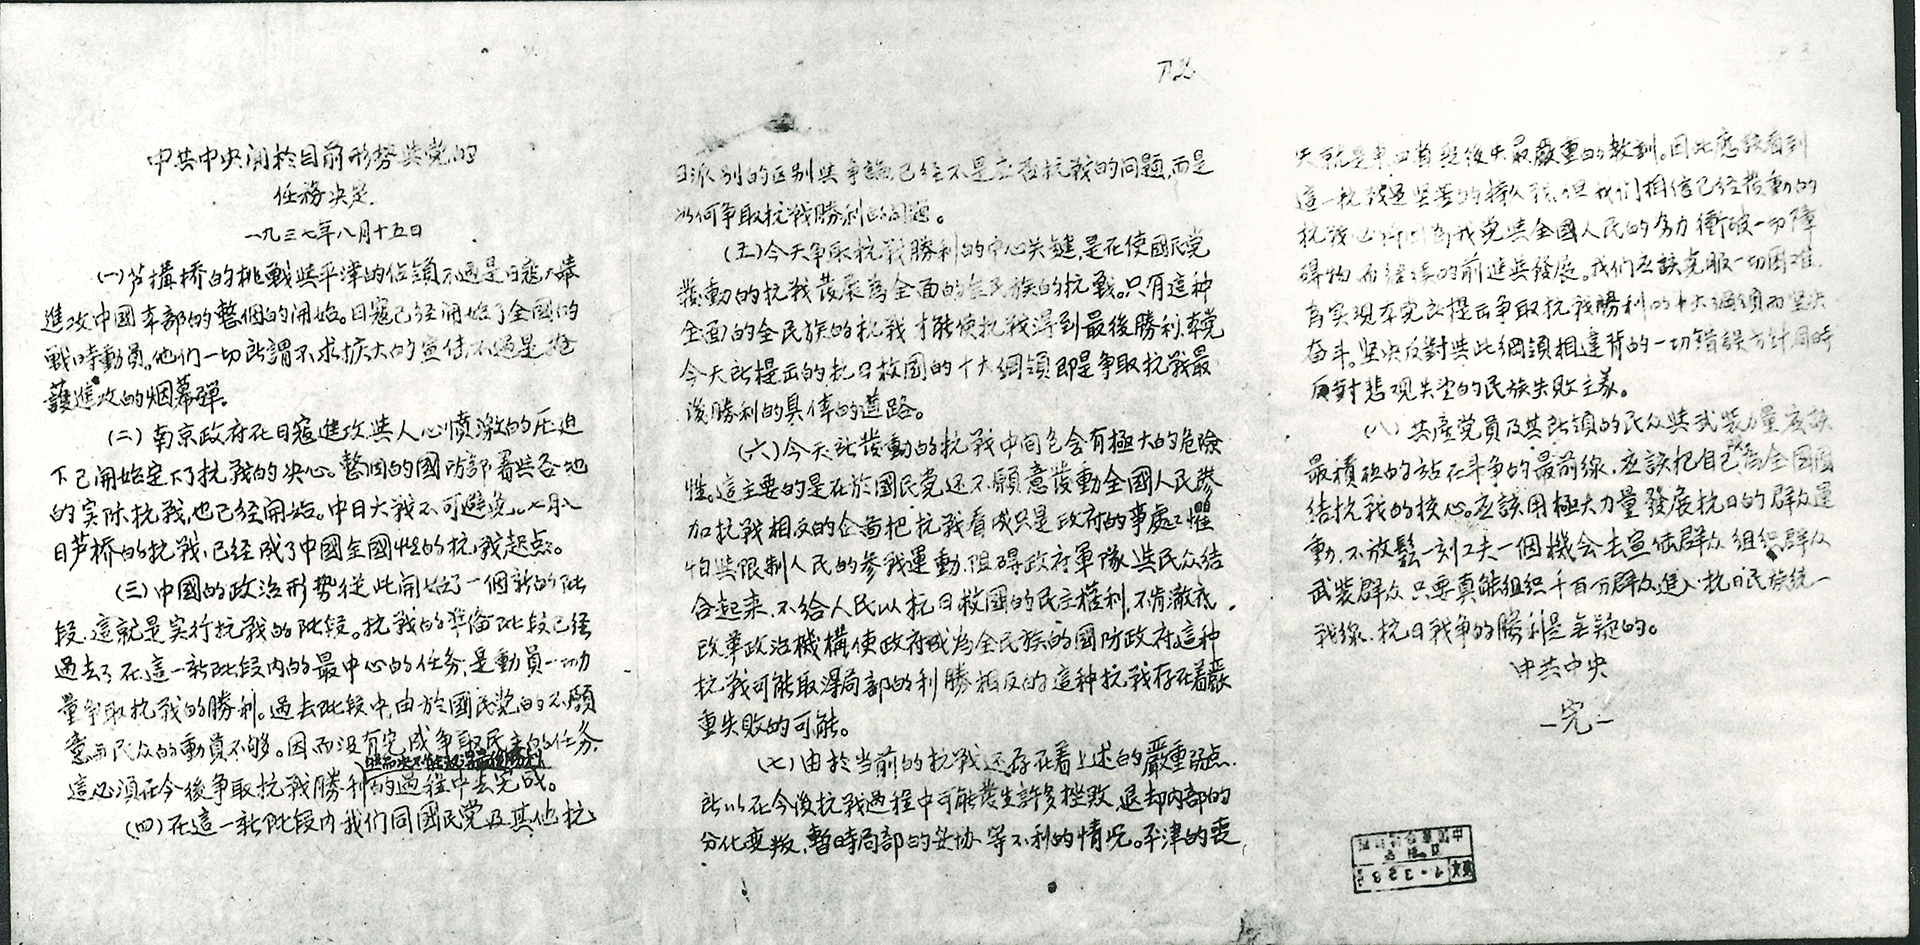 中共中央関於目前形势與党的
任務决定.
一九三七年八月十五日
(一)芦搆桥的挑戰與平津的佔領不過是日寇大舉
進攻中國本部的整個的開始。日寇已经開始了全國的
戰時動員。他们一切所謂不求扩大的宣傳,不過是掩
護進攻的烟幕弹。
(二)南京政府在日寇進攻與人心憤激的压迫
下已開始定下了抗戰的决心。整個的國防部署與各地
的实际抗戰,也已经開始。中日大战不可避免。七月八
日芦桥的抗战,已经成了中國全國性的抗战起点。
(三)中國的政治形势從此開始了一個新的阶
段,這就是实行抗战的阶段。抗战的準备阶段已经
過去了在這一新阶段内的最中心的任务,是動員一切力
量争取抗战的勝利。過去阶段中,由於國民党的不願
意與民众的動員不够。因而没有完成争取民主的任务,
這必須在今後争取抗战勝利的過程中去完成。
(四)在這一新阶段内我们同國民党及其他抗
日派别的区别與争論,已经不是应否抗战的问題,而是
如何争取抗战勝利的问題。
(五)今天争取抗战勝利的中心关鍵,是在使國民党
發動的抗战發展為全面的全民族的抗战。只有這种
全面的全民族的抗战才能使抗战得到最後勝利,本党
今天所提出的抗日救國的十大綱領即是争取抗战最
後勝利的具体的道路。
(六)今天所發動的抗战中间包含有極大的危險
性。這主要的是在於國民党还不願意發動全國人民参
加抗战相反的企圖把抗战看成只是政府的事處々懼
怕與限制人民的参战運動,阻碍政府軍隊與民众结
合起来,不给人民以抗日救國的民主權利,不肯澈底
改革政治機構使政府成为全民族的國防政府這种
抗战可能取得局部的利勝相反的這种抗战存在着嚴
重失敗的可能。
(七)由於当前的抗战还存在着上述的嚴重弱点.
所以在今後抗战過程中可能發生許多挫敗,退却内部的
分化变叛,暫時局部的妥协等不利的情况。平津的喪
失就是 最嚴重的教訓。因此應該看到
這一抗战是坚苦的持久战,但我们相信已经發動的
抗战必將因為我党與全國人民的努力衝破一切障
碍物而继续的前進與發展。我们应該克服一切困难.
為实现本党所提出争取抗战勝利的十大綱領而坚决
奋斗。坚决反對與此綱領相違背的一切错誤方針,同時
反對悲观失望的民族失敗主義。
(八)共産党員及其所領的民众與武装力量应該
最積極的站在斗争的最前線,应該把自己為全國團
结抗战的核心。应該用極大力量發展抗日的群众運
動,不放鬆一刻工夫一個機会去宣傳群众組织群众
武装群众只要真能組织千百万群众進入抗日民族统一
战線,抗日戰争的勝利是無疑的。
中共中央
—完—